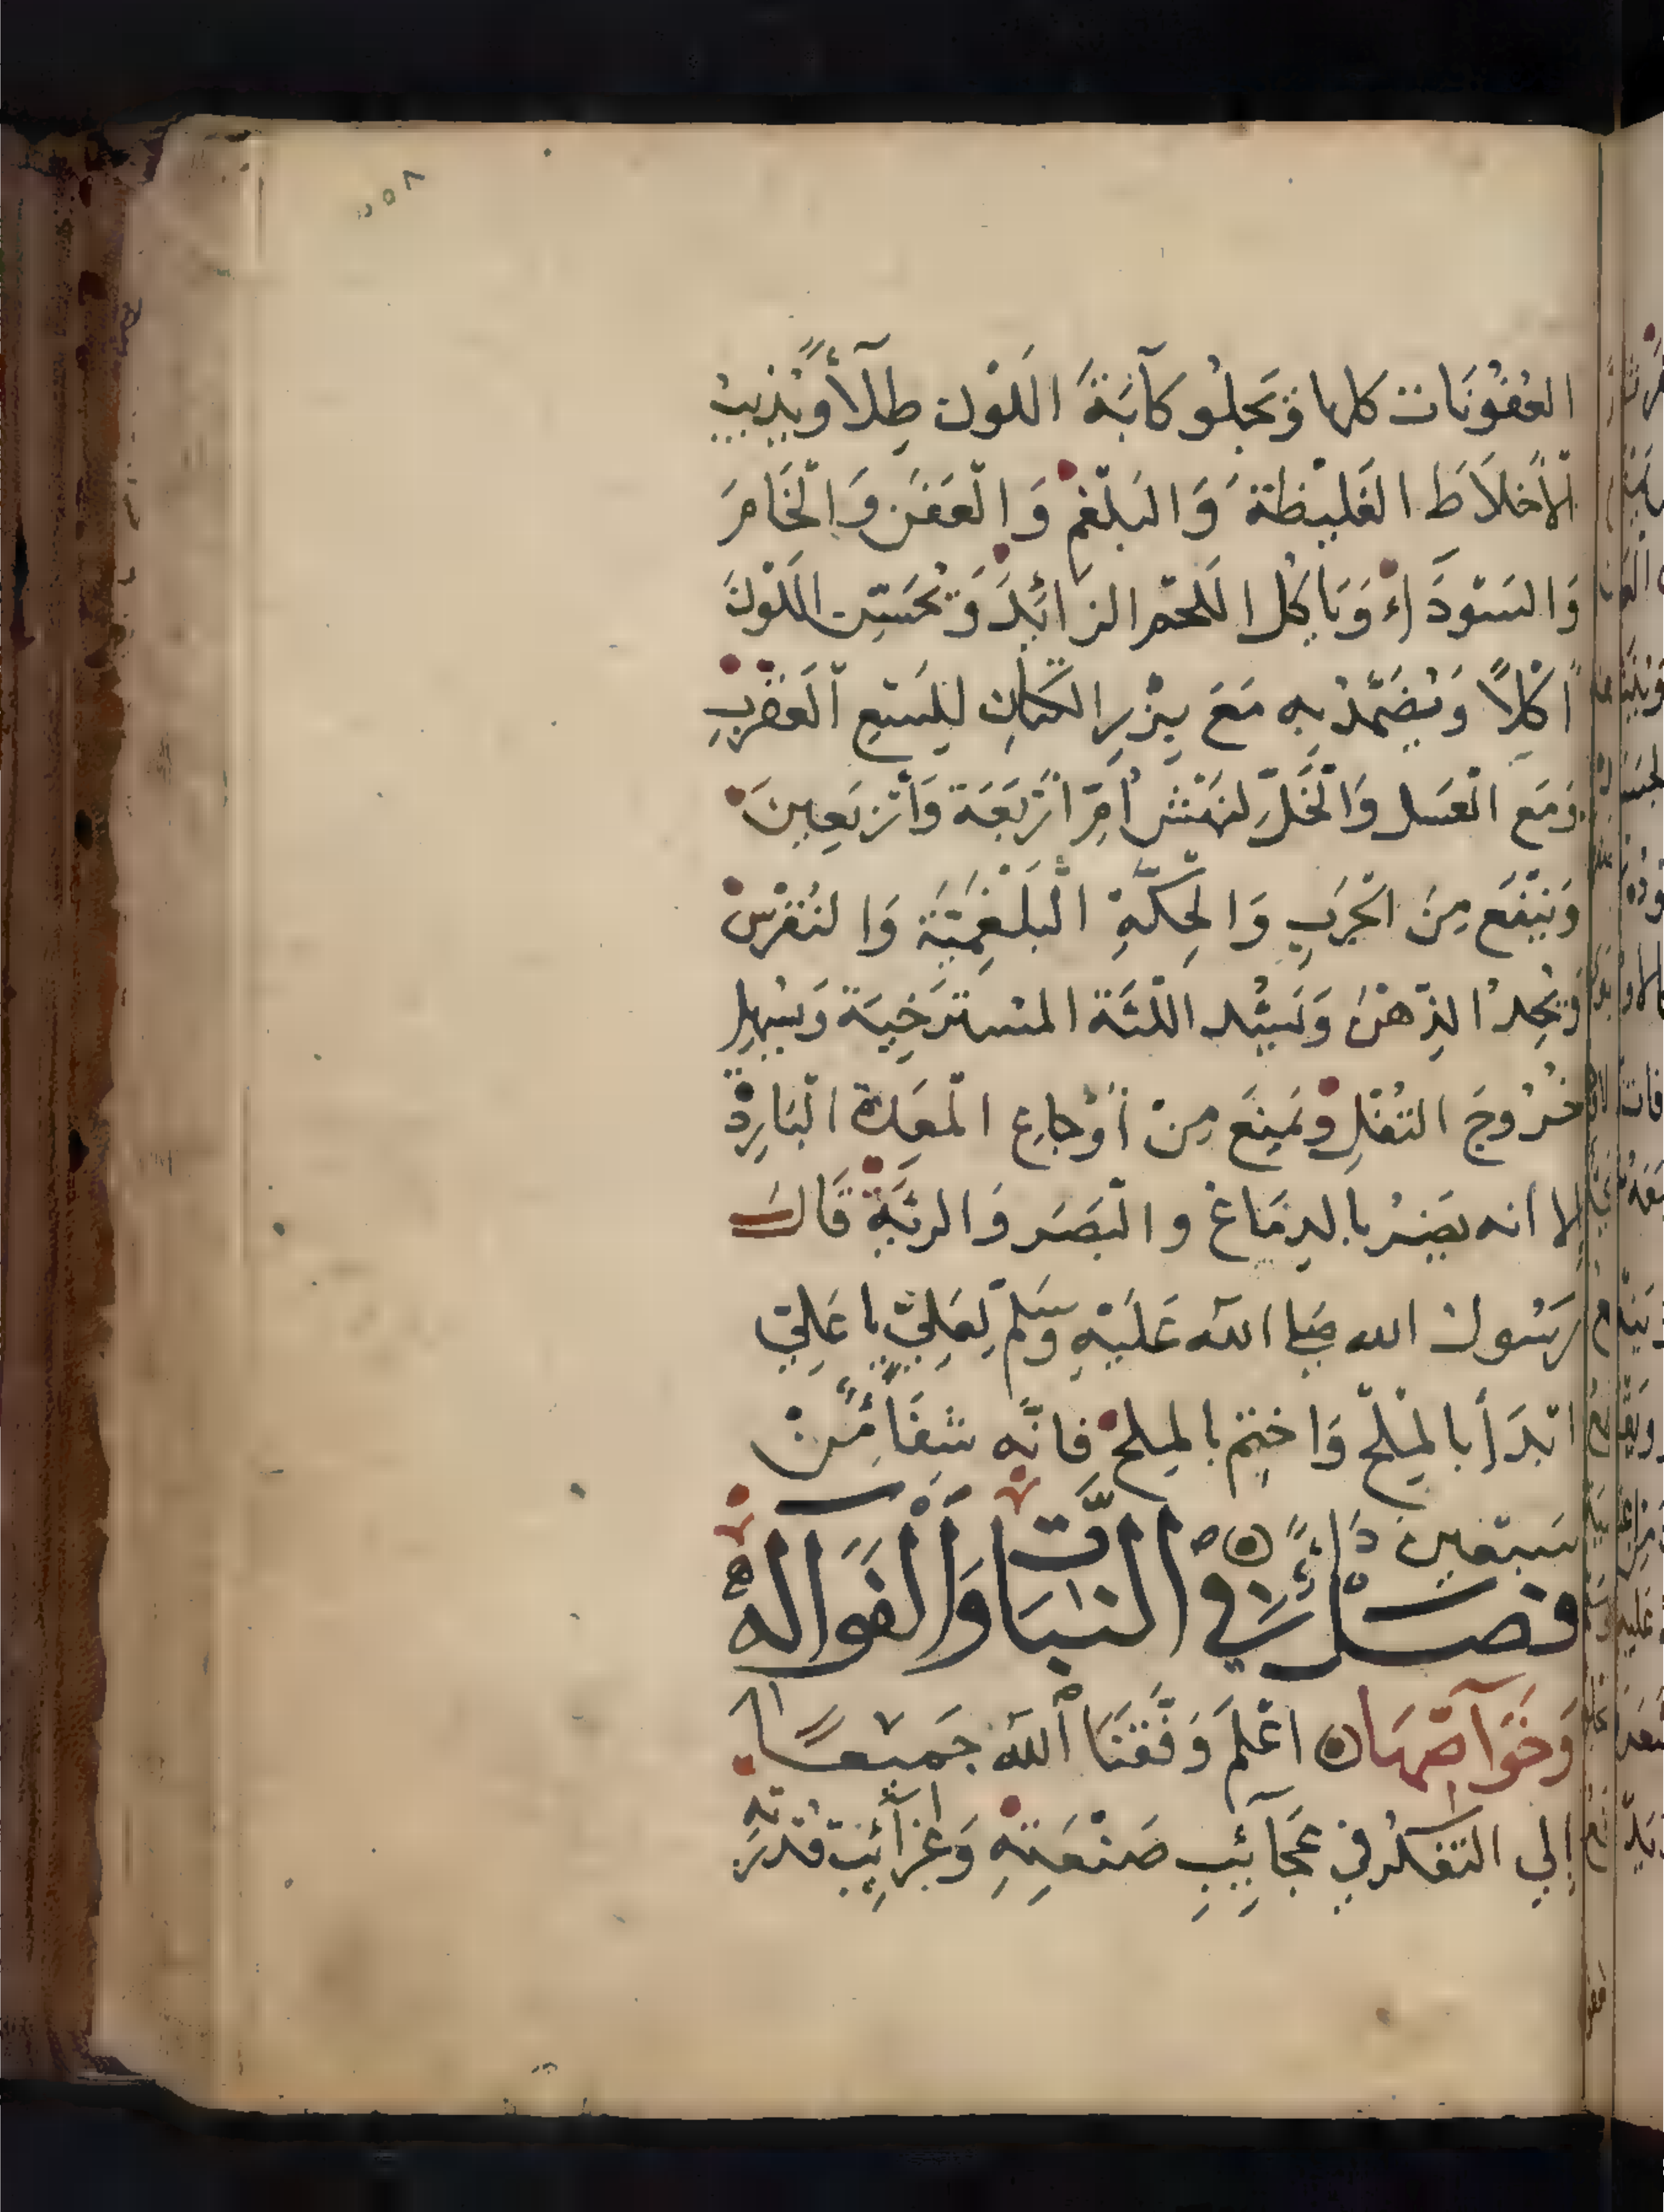 العُفُونَات كلها وَيَجلُو كآبَةَ اللَوْن طِلآءً وَيُذِيبُ
الأخلاَطَ الغَليْظَةَ وَالبَلْغَمَ وَالْعَفَن وَالْخَامَ
وَالسَوْدَاءَ وَيَاكُل اللحم الزائِدَ وَيُحَسِّن اللَوْنَ
اكْلاً وَيُضَمَّدُ بِهِ مَعَ بِزْرِ الكَتَانِ لِلَسْعِ الْعَقْرَبِ
وَمَع الْعَسَل وَالْخَلِّ لنَهْش أمِّ ارْبَعَة وَأرْبَعِينَ
وَيَنْفَع مِنَ الْجَرَبِ وَالْحِكَّةِ الْبَلْغَمِيَّة وَالنُقْرسْ
وَيُحِدُّ الذِّهْنَ وَيَشُد اللّثَة المسْتَرْخِيَة وَيُسْهِلُ
خُرُوجَ الثُفْلِ وَيَمنَع مِنْ أَوْجَاعِ الْمعِدَة الْبَارِدْ
إلا انه يَضُر بالدِمَاغ والْبَصَر وَالرئَةِ قَالَ
رَسُول الله صَلى الله عَلَيْهِ وَسَلم لِعَلِيّ يا عَلِيّ
ابْدَأ بالمِلْحِ وَاختِم بالمِلح فَانَّه شِفَاءٌ مِّنْ
سَبْعِين دَاءً
فصْلٌ فِي النبَات وَالْفَوَاكه
وَخَوَآصّهَا اعْلَم وَفَّقَنَا الله جَمِيْعًا
إلي التَفَكُر فِي عَجَآئِبِ صَنْعَتِهِ وَغَرَآئِب قُدْرَتِهِ